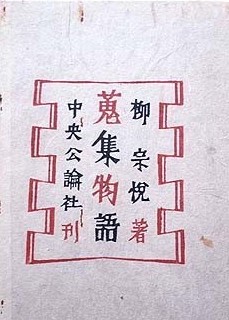 柳宗悦著
蒐集物語
中央公論社刊